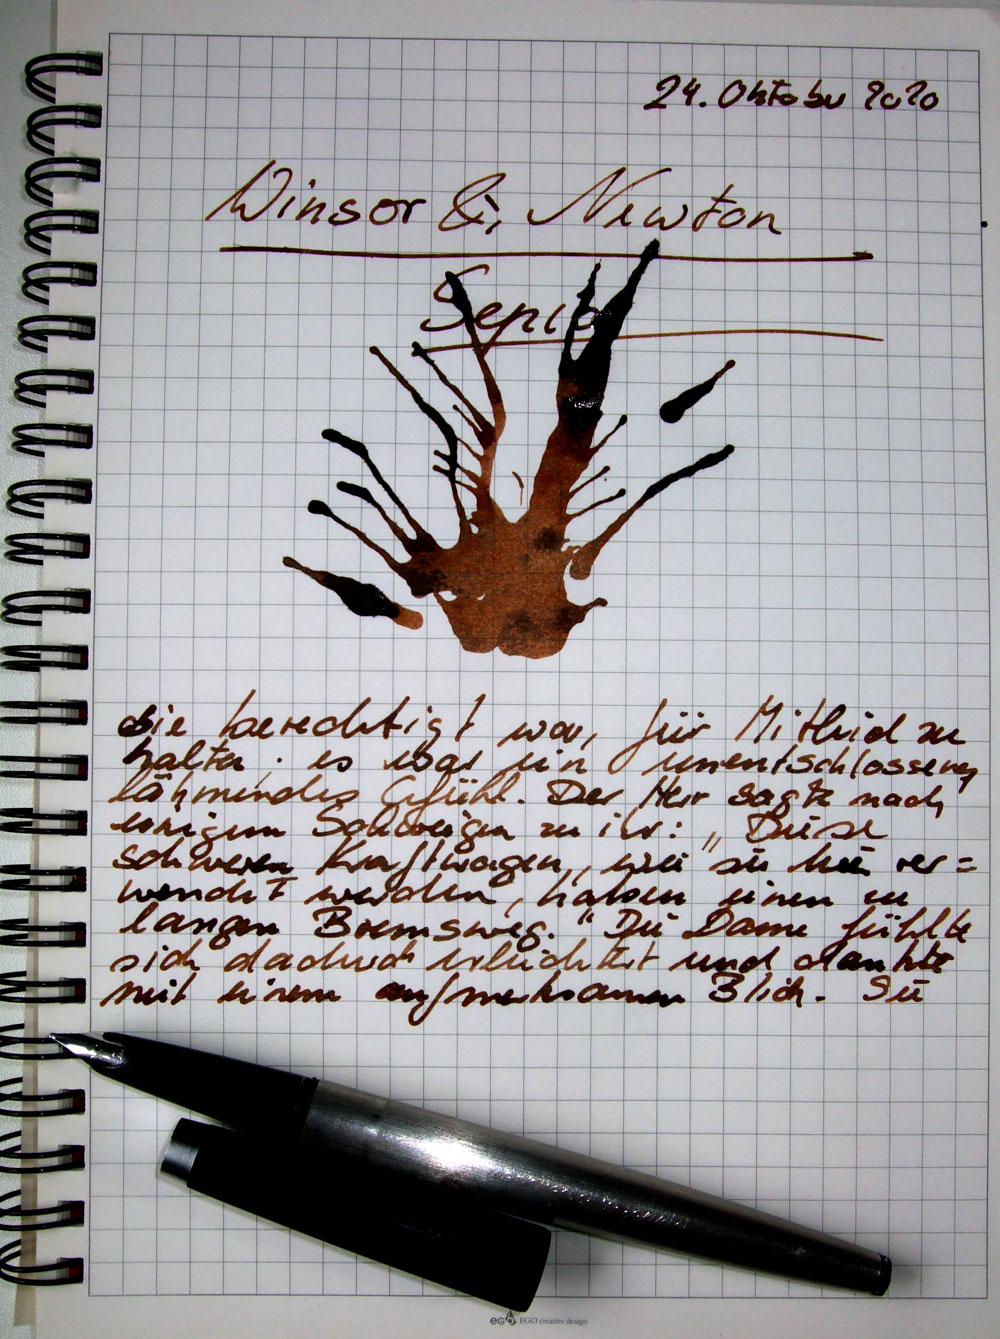 24. Oktober 2020
Winsor & Newton
Sepia
die berechtigt war, für Mitleid zu
halten; es war ein unentschlossenes
lähmendes Gefühl. Der Herr sagte nach
einigem Schweigen zu ihr: „Diese
schweren Kraftwagen, wie sie hier ver=
wendet werden, haben einen zu
langen Bremsweg.“ Die Dame fühlte
sich dadurch erleichtert und dankte
mit einem aufmerksamen Blick. Sie
EGO EGO creative design